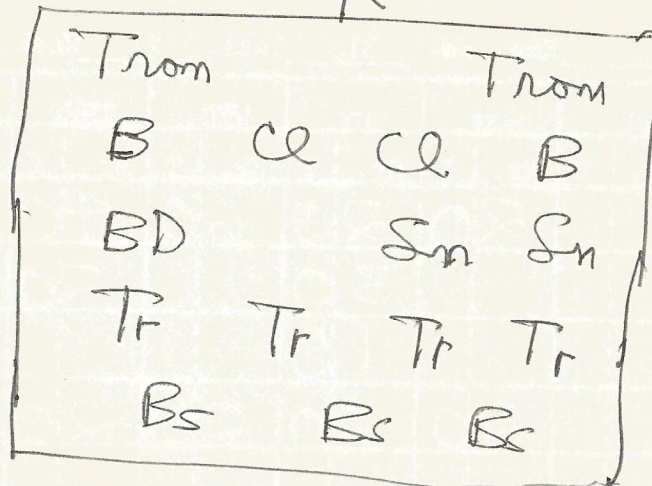 Trom Trom
B Cl Cl B
BD Sn Sn
Tr Tr Tr Tr
Bs Bs Bs